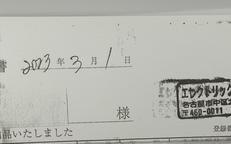 書 2023年3月1日
様
エレクトリック
名古屋市中区
〒460-0011
品いたしました
登録番